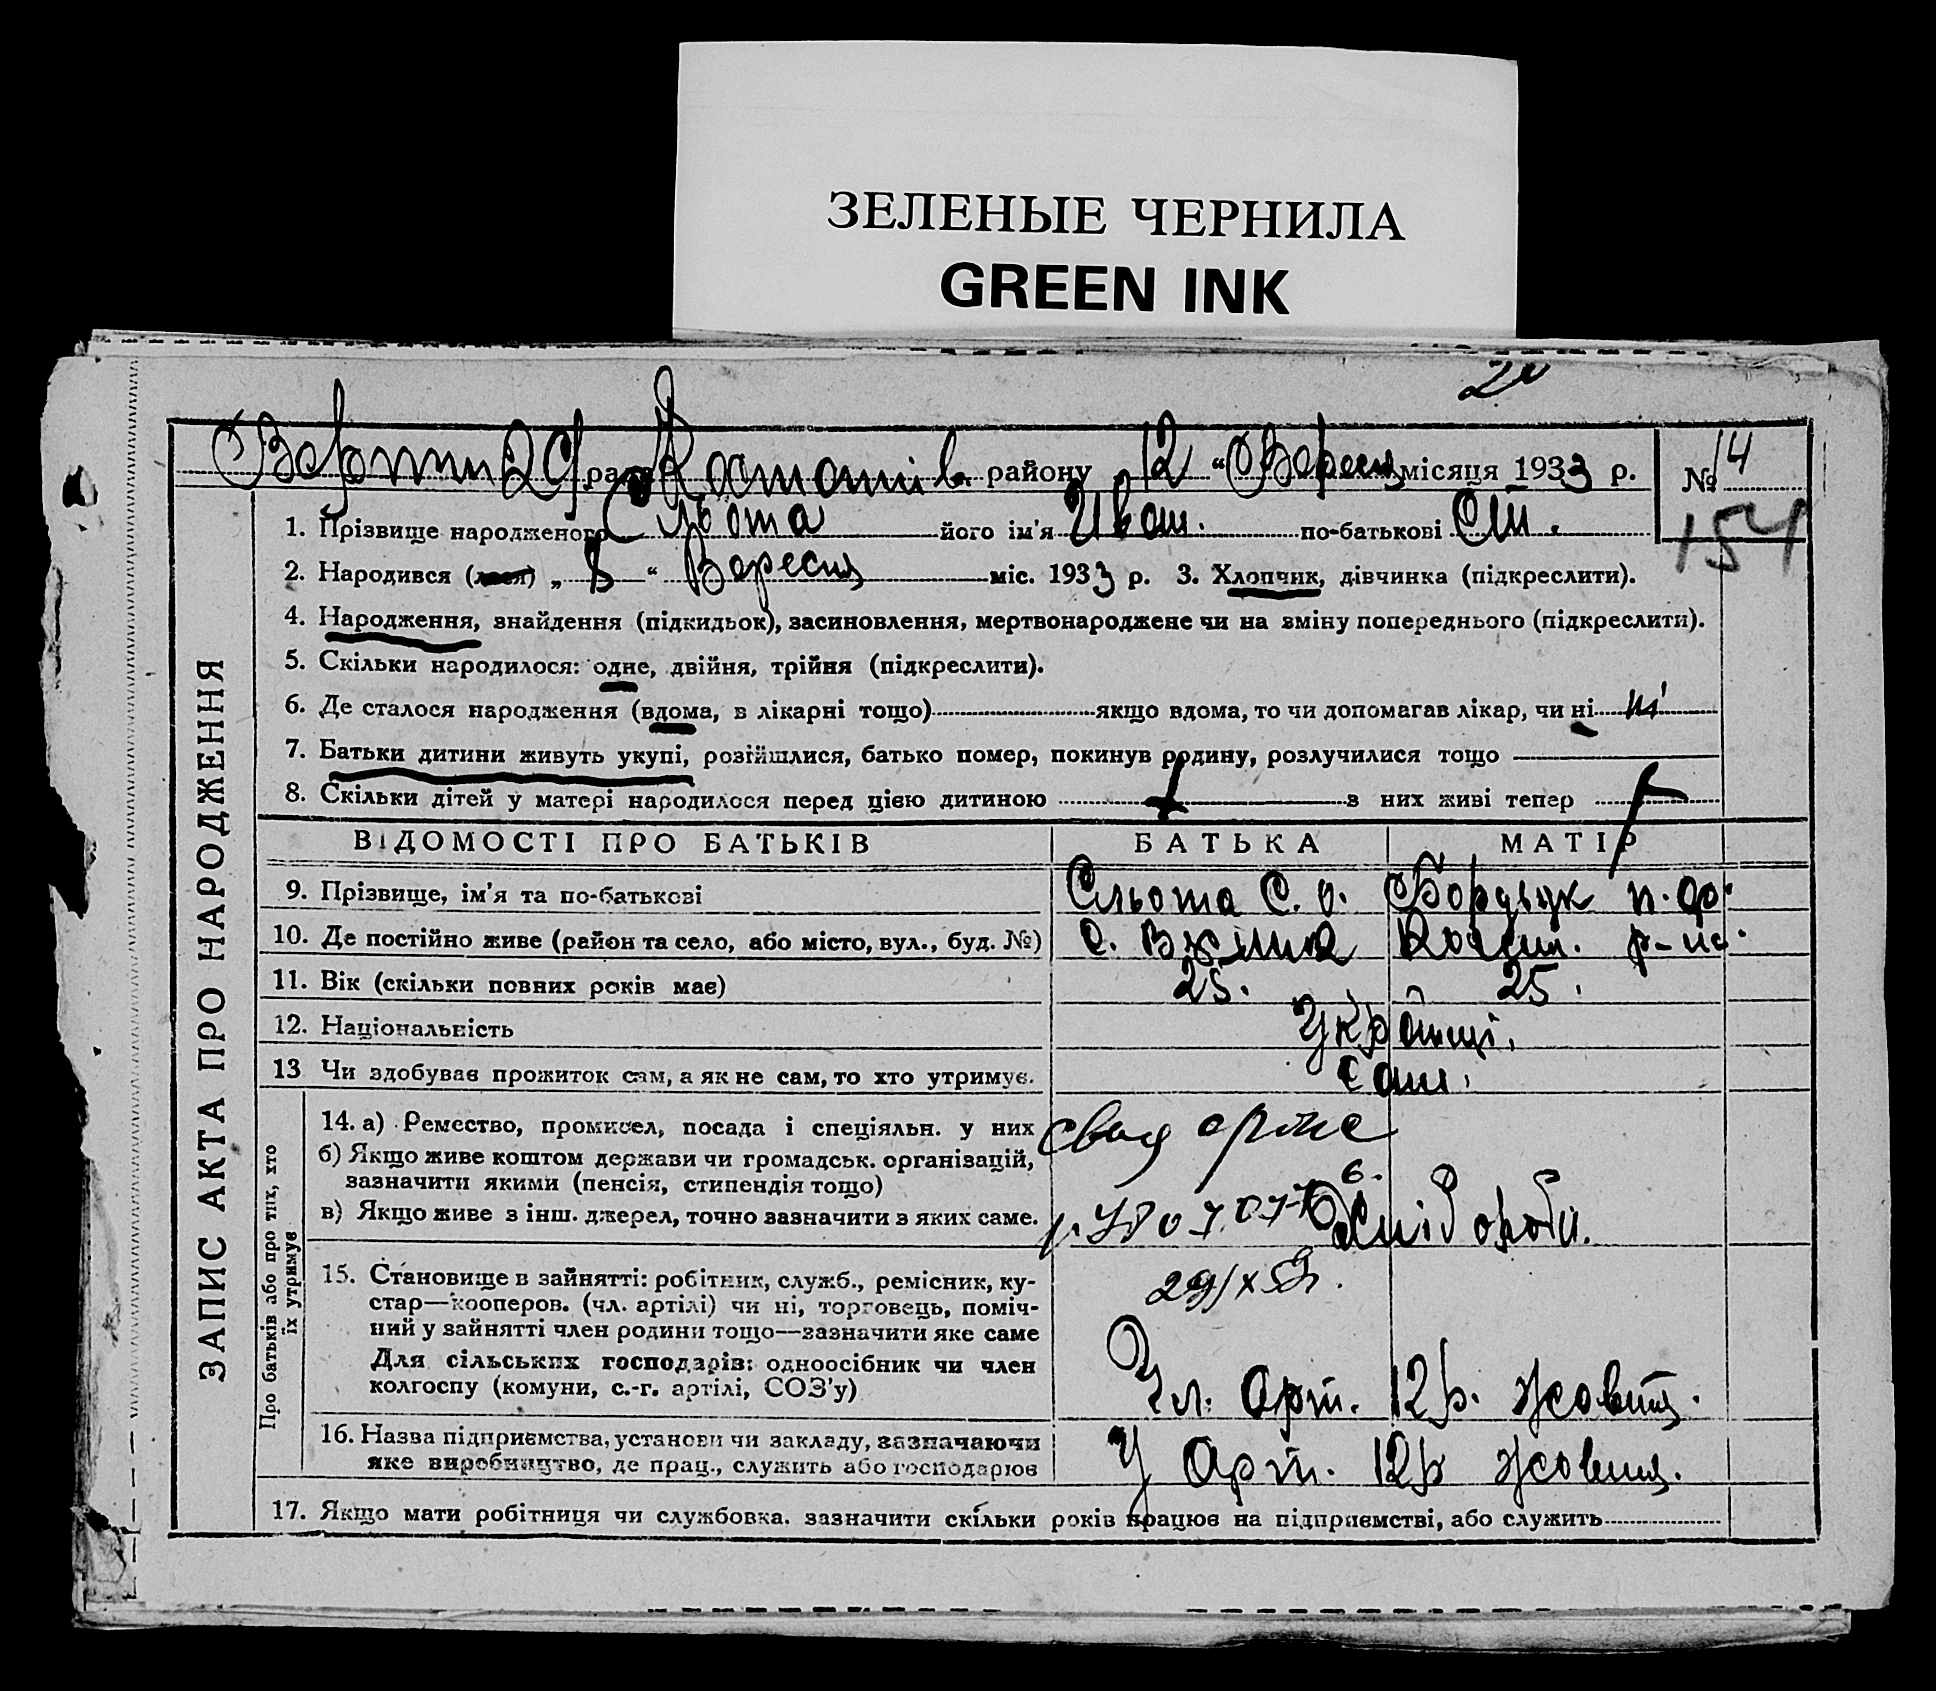 ЗЕЛЕНЫЕ ЧЕРНИЛА
GREEN INK
20
рада района району „12 “ Вересня місяця 1933 р. № 14
154
1. Прізвище народженого Сльота його ім'я Иван. по-батькові Сти.
2. Народився (лася) „ 8 “ Вересня міс. 1933 р. 3. Хлопчик, дівчинка (підкреслити).
4. Народження, знайдення (підкидьок), засиновлення, мертвонароджене чи на зміну попереднього (підкреслити).
5. Скільки народилося: одне, двійня, трійня (підкреслити).
6. Де сталося народження (вдома, в лікарні тощо) якщо вдома, то чи допомагав лікар, чи ні ні
7. Батьки дитини живуть укупі, розійшлися, батько помер, покинув родину, розлучилися тощо
8. Скільки дітей у матері народилося перед цією дитиною з них живі тепер
ЗАПИС АКТА ПРО НАРОДЖЕННЯ
ВІДОМОСТІ ПРО БАТЬКІВ БАТЬКА МАТІР
9. Прізвище, ім'я та по-батькові Сльота С. О. Бордюк П. Ф.
10. Де постійно живе (район та село, або місто, вул., буд. №) с. р-на.
11. Вік (скільки повних років має) 25. 25.
12. Національність Українці.
13 Чи здобував прожиток сам, а як не сам, то хто утримує. Сами.
Про батьків або про тих, хто їх утримує
14. а) Ремество, промисел, посада і спеціяльн. у них
б) Якщо живе коштом держави чи громадськ. організацій,
зазначити якими (пенсія, стипендія тощо)
в) Якщо живе з інш. джерел, точно зазначити з яких саме.
15. Становище в зайнятті: робітник, служб., ремісник, ку-
стар—кооперов. (чл. артілі) чи ні, торговець, поміч-
ний у зайнятті член родини тощо—зазначити яке саме
Для сільських господарів: одноосібник чи член
колгоспу (комуни, с.-г. артілі, СОЗ'у)
Чл. Арт. 12 р. Жовтня.
16. Назва підприємства, установи чи закладу, зазначаючи
яке виробництво, де прац., служить або господарює
У Арт. 12 р Жовтня.
17. Якщо мати робітниця чи службовка. зазначити скільки років працює на підприємстві, або служить